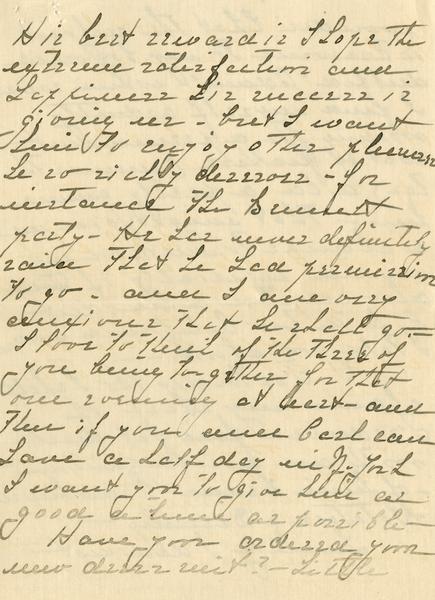 His best reward is I hope the
extreme satisfaction and
happiness his success is
giving us - but I want
him to enjoy other pleasures
he so richly deserves - for
instance the Bennett
party - He has never definitely
said that he had permission
to go - and I am very
anxious that he shall go -
I love to think of the three of
you being together for that
one evening at least - and
then if you and Carl can
have a half day in N. York
I want you to give him as
good a time as possible -
Have you ordered your
new dress suit? - Little